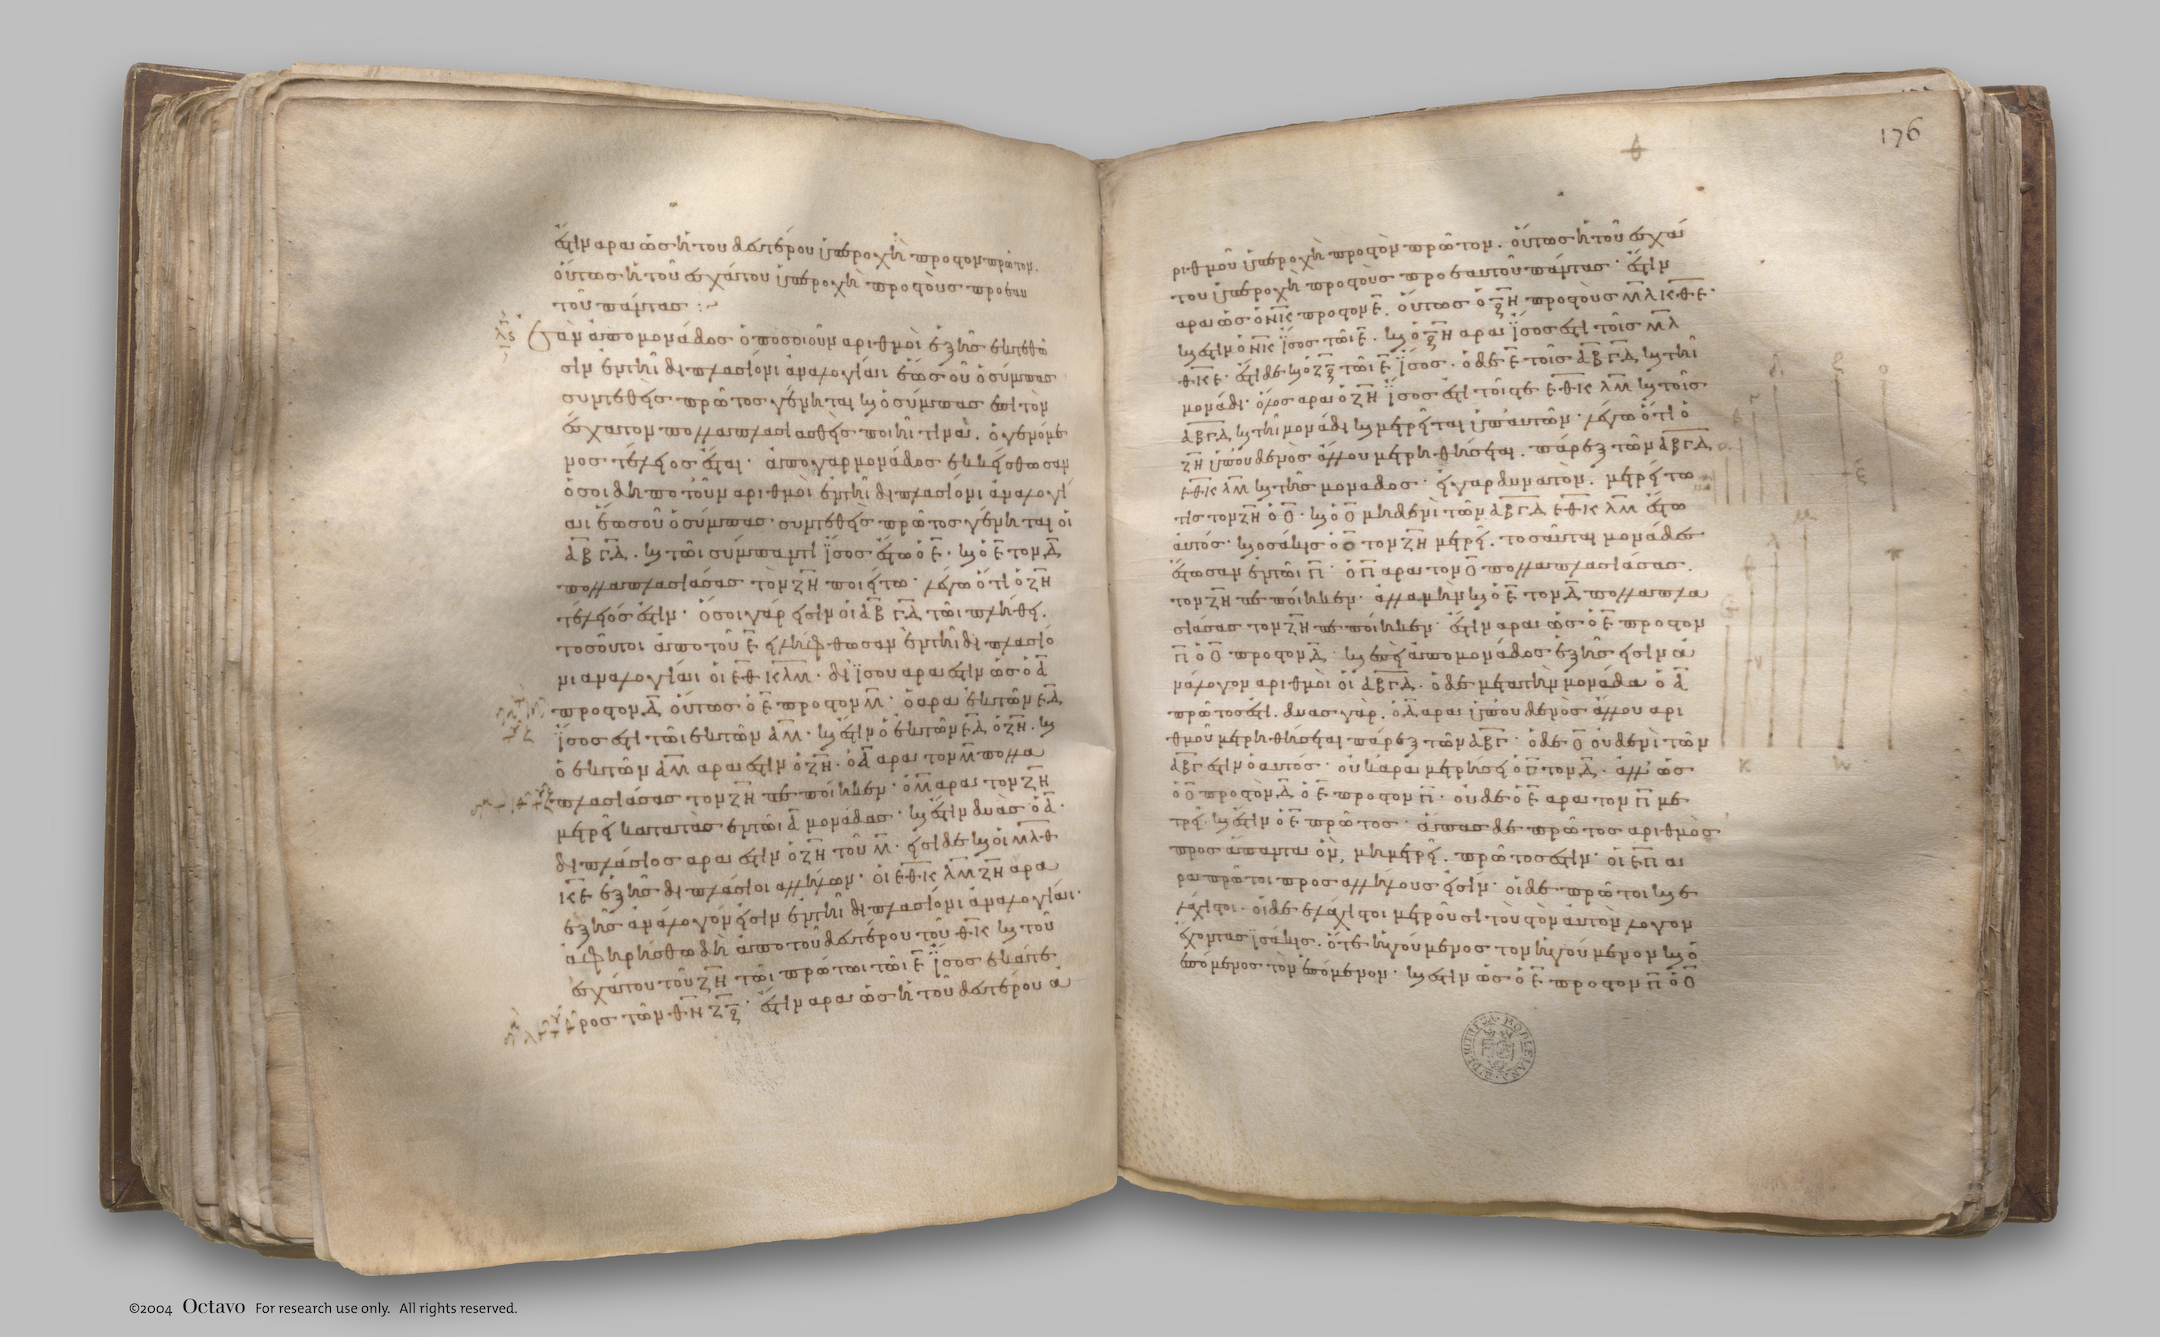 ἔστιν ἄρα ὡς ἡ τοῦ δευτέρου ὑπεροχὴ πρὸς τὸν πρῶτον.
οὕτως ἡ τοῦ ἐσχάτου ὑπεροχὴ πρὸς τοὺς πρὸ ἑαυ
τοῦ πάντας :~
λϛ Ἐὰν ἀπὸ μονάδος ὁποσοιοῦν ἀριθμοὶ ἑξῆς ἐκτεθῶ
σιν ἐν τῆι διπλασίονι ἀναλογίαι ἕως οὗ ὁ σύμπας
συντεθεὶς πρῶτος γένηται καὶ ὁ σύμπας ἐπὶ τὸν
ἔσχατον πολλαπλασιασθεὶς ποιῆι τινα. ὁ γενόμε
νος τέλειος ἔσται· ἀπὸ γὰρ μονάδος ἐκκείσθωσαν
ὅσοι δηποτοῦν ἀριθμοὶ ἐν τῆι διπλασίονι ἀναλογί
αι ἕως οὗ ὁ σύμπας συντεθεὶς πρῶτος γένηται οἱ
Α Β Γ Δ. καὶ τῶι σύμπαντι ἴσος ἔστω ὁ Ε. καὶ ὁ Ε τὸν Δ
πολλαπλασιάσας τὸν ΖΗ ποιείτω· λέγω ὅτι ὁ ΖΗ
τέλειός ἐστιν· ὅσοι γάρ εἰσιν οἱ Α Β Γ Δ τῶι πλήθει.
τοσοῦτοι ἀπὸ τοῦ Ε εἰλήφθωσαν ἐν τῆι διπλασίο
νι ἀναλογίαι οἱ Ε ΘΚ Λ Μ· δι ἴσου ἄρα ἐστὶν ὡς ὁ Α
πρὸς τὸν Δ οὕτως ὁ Ε πρὸς τὸν Μ· ὁ ἄρα ἐκ τῶν Ε Δ
ἴσος ἐστὶ τῶι ἐκ τῶν Α Μ· καί ἐστιν ὁ ἐκ τῶν Ε Δ ὁ ΖΗ. καὶ
ὁ ἐκ τῶν Α Μ ἄρα ἐστὶν ὁ ΖΗ· ὁ Α ἄρα τὸν Μ πολλα
πλασιάσας τὸν ΖΗ πεποίηκεν· ὁ Μ ἄρα τὸν ΖΗ
μετρεῖ κατὰ τὰς ἐν τῶι Α μονάδας· καί ἐστιν δυὰς ὁ Α·
διπλάσιος ἄρα ἐστὶν ὁ ΖΗ τοῦ Μ· εἰσὶ δὲ καὶ οἱ Μ Λ Θ
Κ Ε ἑξῆς διπλάσιοι ἀλλήλων· οἱ Ε ΘΚ Λ Μ ΖΗ ἄρα
ἑξῆς ἀνάλογόν εἰσιν ἐν τῆι διπλασίονι ἀναλογίαι·
ἀφηρήσθω δὴ ἀπὸ τοῦ δευτέρου τοῦ ΘΚ καὶ τοῦ
ἐσχάτου τοῦ ΖΗ τῶι πρώτωι τῶι Ε ἴσος ἑκάτε
ρος τῶν ΘΝ ΖΞ· ἔστιν ἄρα ὡς ἡ τοῦ δευτέρου ἀ
176
ριθμοῦ ὑπεροχὴ πρὸς τὸν πρῶτον. οὕτως ἡ τοῦ ἐσχά
του ὑπεροχὴ πρὸς τοὺς πρὸ ἑαυτοῦ πάντας· ἔστιν
ἄρα ὡς ὁ ΝΚ πρὸς τὸν Ε. οὕτως ὁ ΞΗ πρὸς τοὺς Μ Λ ΚΘ Ε·
καί ἐστιν ὁ ΝΚ ἴσος τῶι Ε. καὶ ὁ ΞΗ ἄρα ἴσος ἐστὶ τοῖς Μ Λ
ΘΚ Ε· ἔστι δὲ καὶ ὁ ΖΞ τῶι Ε ἴσος. ὁ δὲ Ε τοῖς Α Β Γ Δ καὶ τῆι
μονάδι· ὅλος ἄρα ὁ ΖΗ ἴσος ἐστὶ τοῖς τε Ε ΘΚ Λ Μ καὶ τοῖς
Α Β Γ Δ καὶ τῆι μονάδι καὶ μετρεῖται ὑπ αὐτῶν· λέγω ὅτι ὁ
ΖΗ ὑπ οὐδενὸς ἄλλου μετρηθήσεται. πάρεξ τῶν Α Β Γ Δ
Ε ΘΚ Λ Μ καὶ τῆς μονάδος· εἰ γὰρ δυνατόν. μετρείτω
τις τὸν ΖΗ ὁ Ο. καὶ ὁ Ο μηδενὶ τῶν Α Β Γ Δ Ε ΘΚ Λ Μ ἔστω
ἁυτός· καὶ ὁσάκις ὁ Ο τὸν ΖΗ μετρεῖ. τοσαῦται μονάδες
ἔστωσαν ἐν τῶι Π· ὁ Π ἄρα τὸν Ο πολλαπλασιάσας.
τὸν ΖΗ πεποίηκεν· ἀλλὰ μὴν καὶ ὁ Ε τὸν Δ πολλαπλα
σιάσας τὸν ΖΗ πεποίηκεν· ἔστιν ἄρα ὡς ὁ Ε πρὸς τὸν
Π ὁ Ο πρὸς τὸν Δ. καὶ ἐπεὶ ἀπὸ μονάδος ἑξῆς εἰσιν ἀ
νάλογον ἀριθμοὶ οἱ Α Β Γ Δ. ὁ δὲ μετὰ τὴν μονάδα ὁ Α
πρῶτος ἐστι. δυὰς γάρ. ὁ Δ ἄρα ὑπ οὐδενὸς ἄλλου ἀρι
θμοῦ μετρηθήσεται πάρεξ τῶν Α Β Γ· ὁ δὲ Ο οὐδενὶ τῶν
Α Β Γ ἐστιν ὁ αὐτός· οὐκ ἄρα μετρήσει ὁ Ο τὸν Δ. ἀλλ ὡς
ὁ Ο πρὸς τὸν Δ ὁ Ε πρὸς τὸν Π. οὐδὲ ὁ Ε ἄρα τὸν Π με
τρεῖ. καί ἐστιν ὁ Ε πρῶτος· ἅπας δὲ πρῶτος ἀριθμὸς
πρὸς ἅπαντα ὃν, μὴ μετρεῖ. πρῶτος ἐστιν· οἱ Ε Π ἄ
ρα πρῶτοι πρὸς ἀλλήλους εἰσίν· οἱ δὲ πρῶτοι καὶ ἐ
λάχιστοι. οἱ δὲ ἐλάχιστοι μετροῦσι τοὺς τὸν ἀυτὸν λόγον
ἔχοντας ἰσάκις. ὅ τε ἡγούμενος τὸν ἡγούμενον καὶ ὁ
ἑπόμενος τὸν ἑπόμενον· καί ἐστιν ὡς ὁ Ε πρὸς τὸν Π ὁ Ο
©2004 Octavo For research use only. All rights reserved.